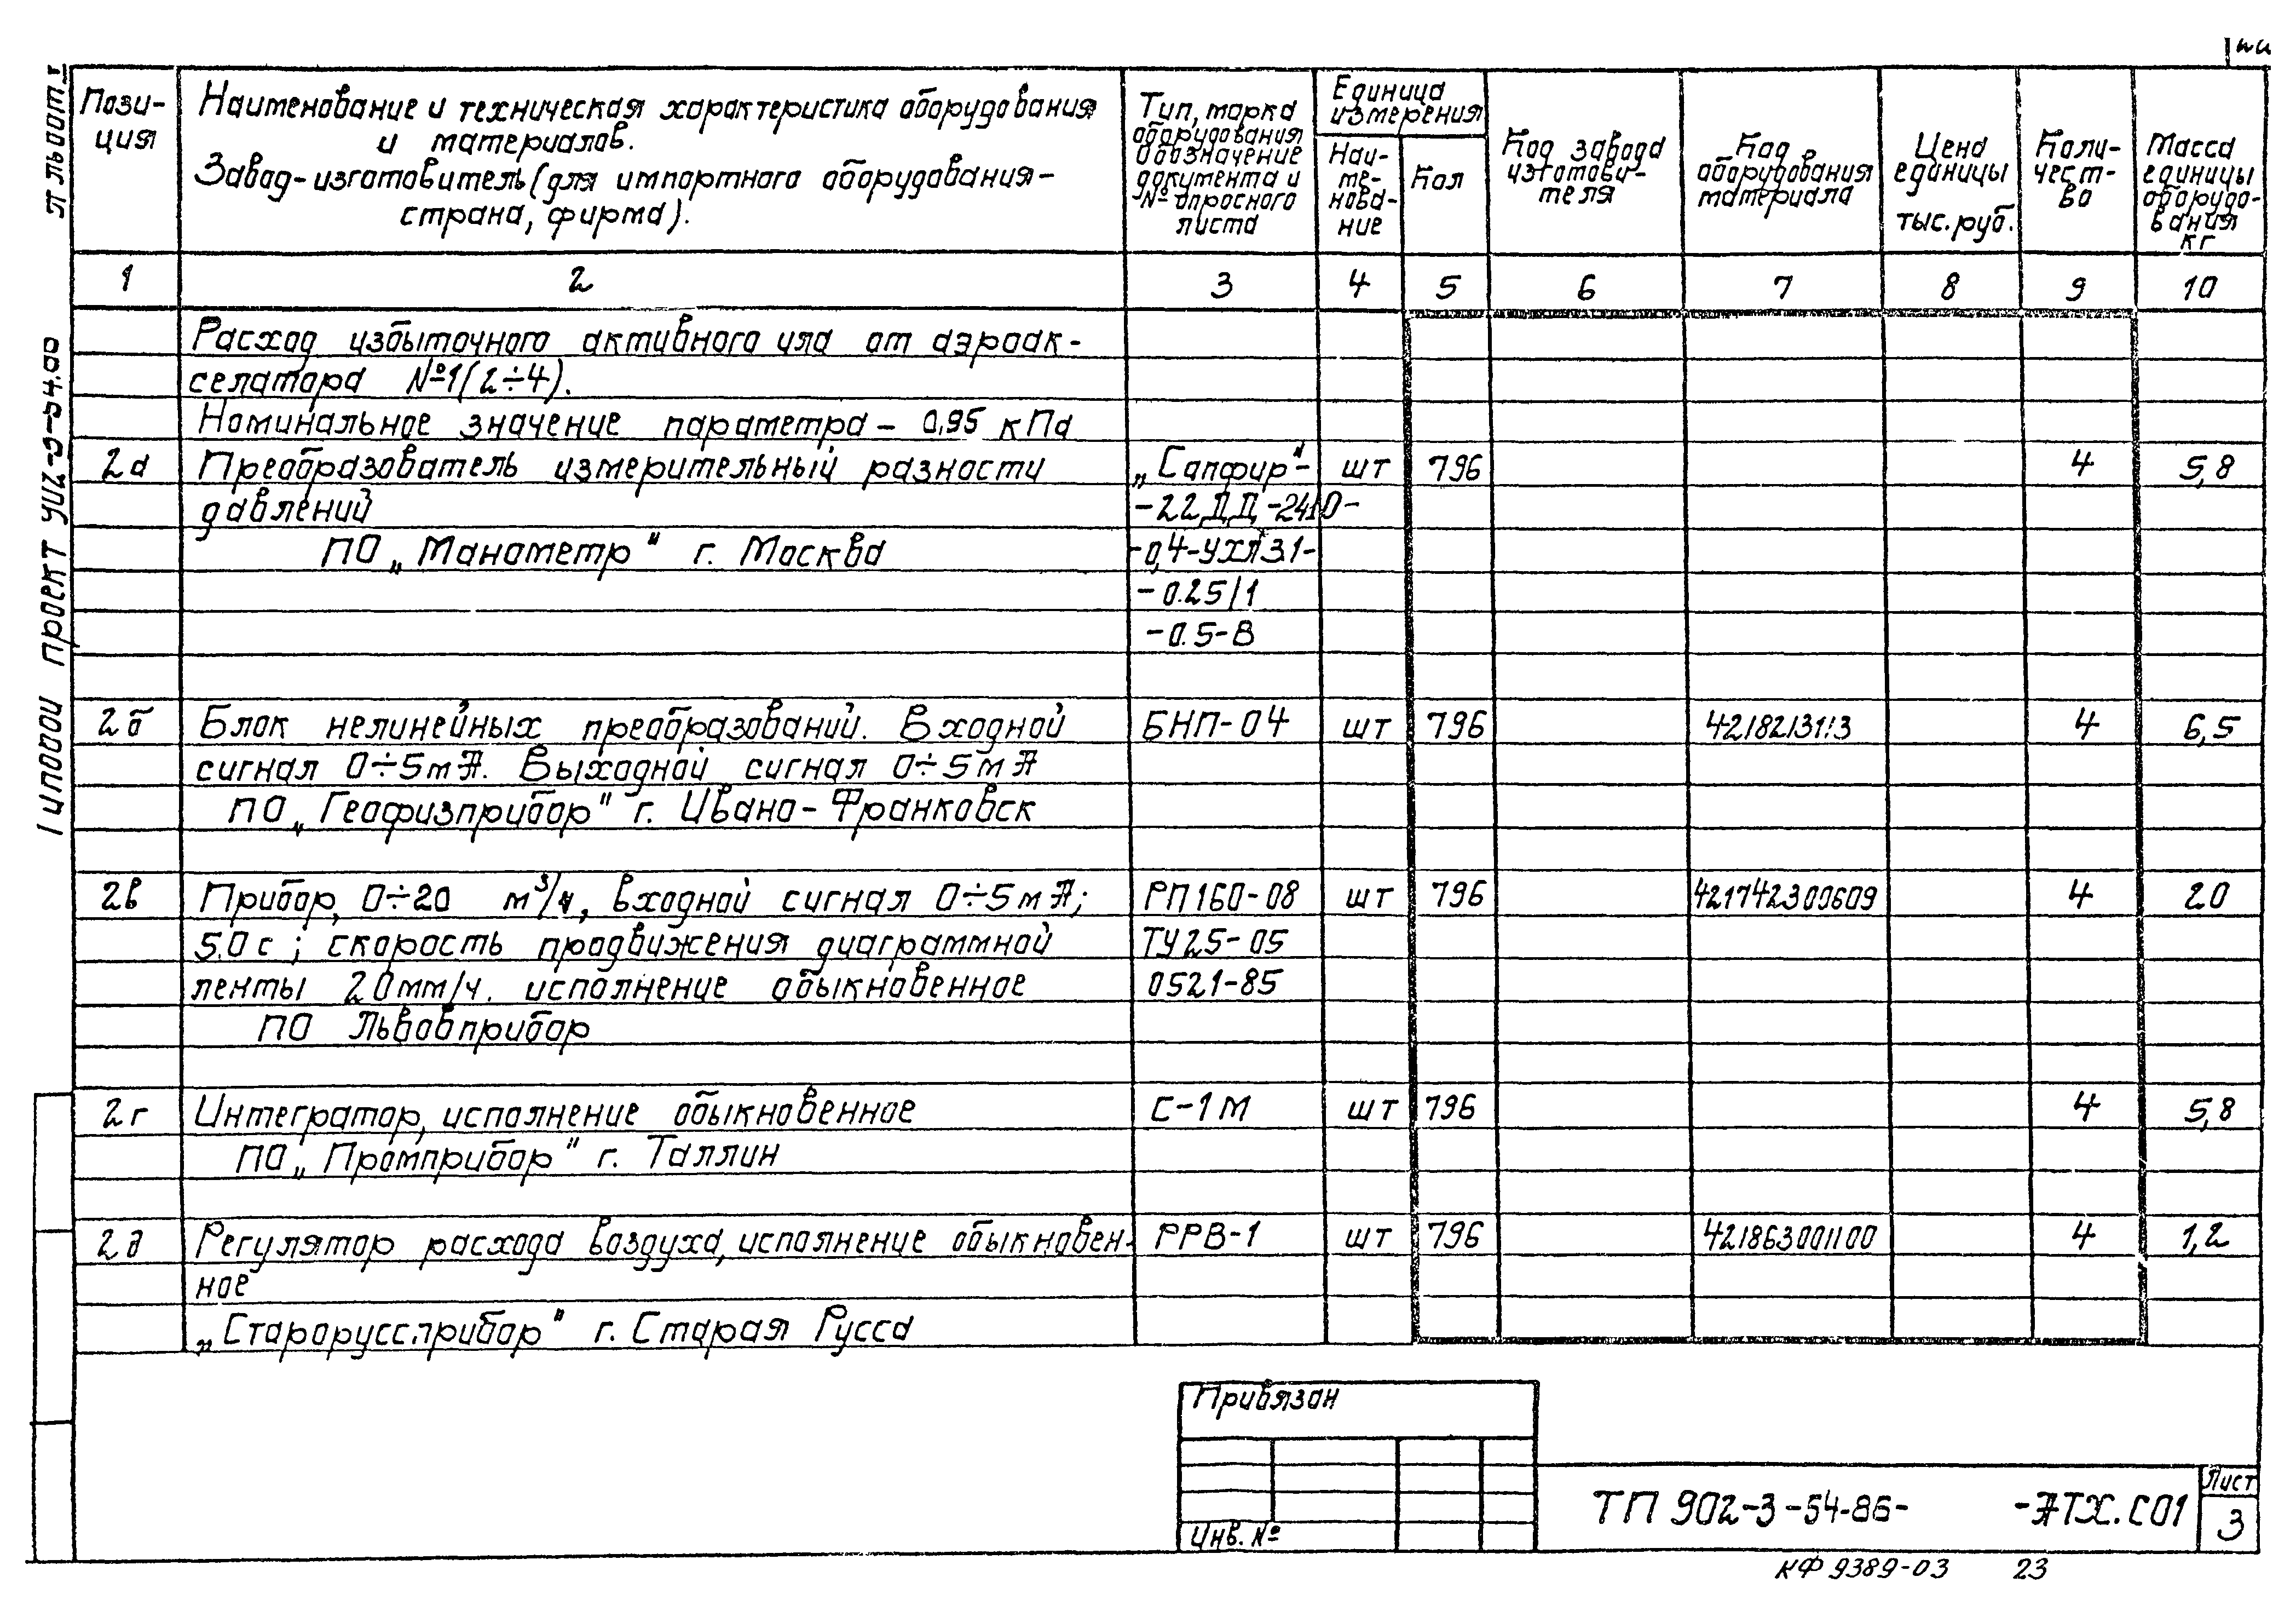 Типовой проект 902-3-54.86
Альбом
Пози-
ция
Наименование и техническая характеристика оборудования
и материалов.
Завод-изготовитель (для импортного оборудования-
страна, фирма).
Тип, марка
оборудования
Обозначение
документа и
№ опросного
листа
Единица
измерения
Наи-
ме-
нова-
ние
Кол
Код завода
изготови-
теля
Код
оборудования
материала
Цена
единицы
тыс. руб.
Коли-
чест-
во
Масса
единицы
оборудо-
вания
кг
1 2 3 4 5 6 7 8 9 10
Расход избыточного активного ила от аэроак-
селатора №1(2÷4).
Номинальное значение параметра - 0,95 кПа
2а Преобразователь измерительный разности „Сапфир"- шт 796 4 5,8
давлений -22ДД-2410-
ПО „Манометр" г. Москва -0,4-УХЛ3.1-
-0.25/1
-0.5-В
2б Блок нелинейных преобразований. Входной БНП-04 шт 796 4218213113 4 6,5
сигнал 0÷5мА. Выходной сигнал 0÷5мА
ПО „Геофизприбор" г. Ивано-Франковск
2в Прибор, 0÷20 м³/ч, входной сигнал 0÷5мА; РП160-08 шт 796 421742300609 4 20
5.0с; скорость продвижения диаграммной ТУ25-05
ленты 20мм/ч. исполнение обыкновенное 0521-85
ПО Львовприбор
2г Интегратор, исполнение обыкновенное С-1М шт 796 4 5,8
ПО „Промприбор" г. Таллин
2д Регулятор расхода воздуха, исполнение обыкновен- РРВ-1 шт 796 421863001100 4 1,2
ное
„Старорусс.прибор" г. Старая Русса
Привязан
Инв. №
ТП 902-3-54-86- -АТХ.С01
Лист
3
КФ 9389-03 23